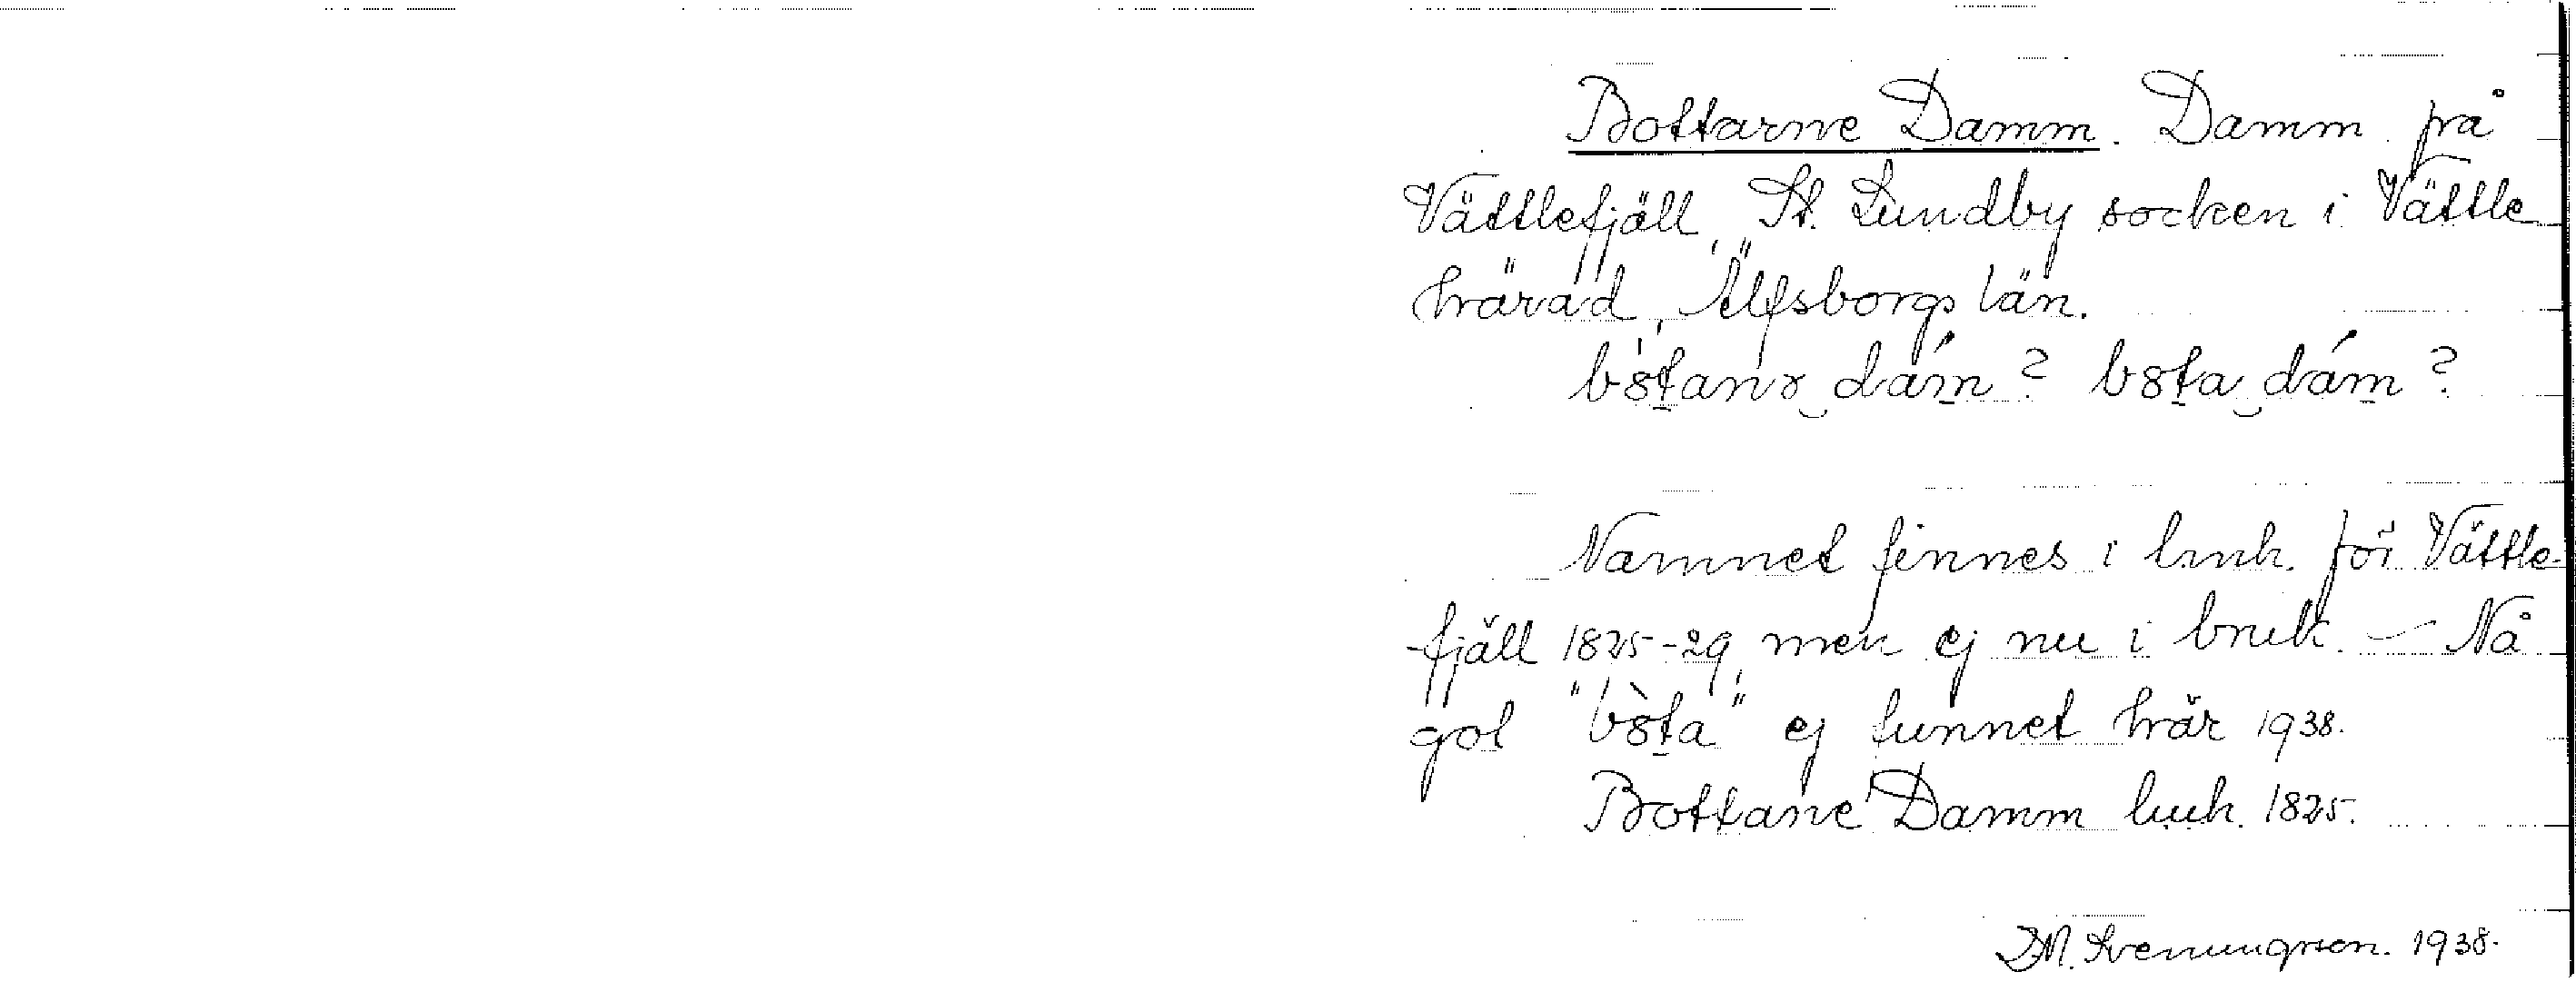 Bottarne Damm. Damm på
Vättlefjäll, St. Lundby socken i Vättle
härad, Älfsborgs län.
Namnet finnes i lmh. för Vättle-
fjäll 1825-29, men ej nu i bruk. – Nå
got "bȣ̀ta" ej funnet här 1938.
Bottane Damm lmh. 1825.
D.M. Svenungsson. 1938.